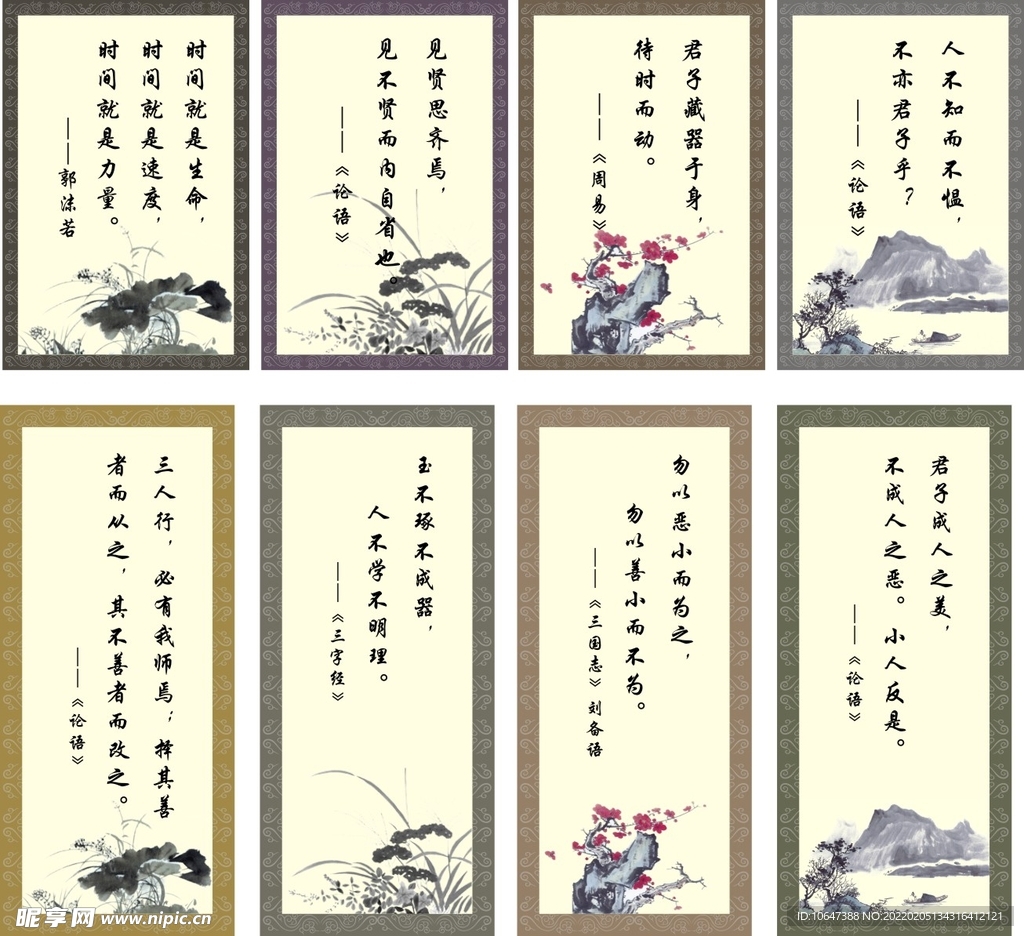 时间就是生命，
时间就是速度，
时间就是力量。
——郭沫若
见贤思齐焉，
见不贤而内自省也。
——《论语》
君子藏器于身，
待时而动。
——《周易》
人不知而不愠，
不亦君子乎？
——《论语》
三人行，必有我师焉；择其善
者而从之，其不善者而改之。
——《论语》
玉不琢不成器，
人不学不明理。
——《三字经》
勿以恶小而为之，
勿以善小而不为。
——《三国志》刘备语
君子成人之美，
不成人之恶。小人反是。
——《论语》
昵享网 www.nipic.cn
ID:10647388 NO:20220205134316412121